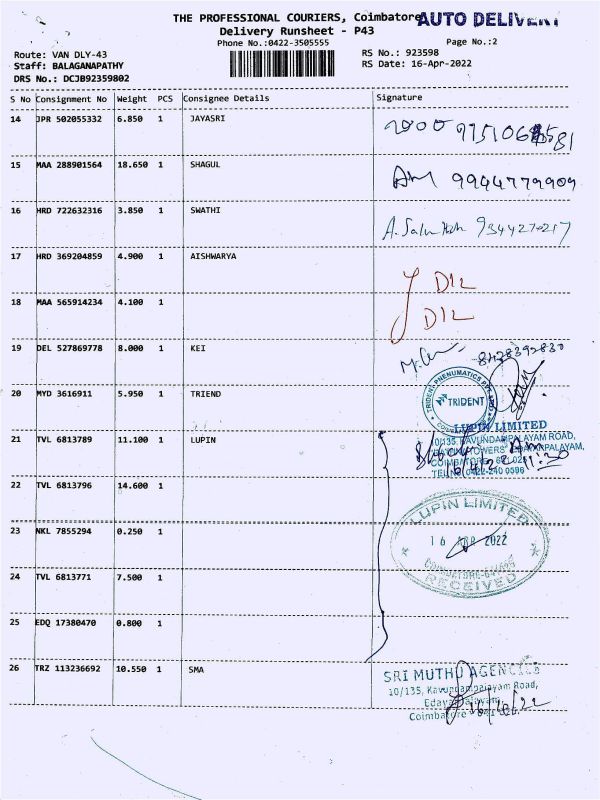 THE PROFESSIONAL COURIERS, Coimbatore
AUTO DELIVERY
Delivery Runsheet - P43
Phone No.:0422-3505555
Page No.:2
Route: VAN DLY-43
RS No.: 923598
Staff: BALAGANAPATHY
RS Date: 16-Apr-2022
DRS No.: DCJB92359802
S No Consignment No Weight PCS Consignee Details Signature
14 JPR 502055332 6.850 1 JAYASRI
15 MAA 288901564 18.650 1 SHAGUL
9944779909
16 HRD 722632316 3.850 1 SWATHI
9344270217
17 HRD 369204859 4.900 1 AISHWARYA
D12
18 MAA 565914234 4.100 1
D12
19 DEL 527869778 8.000 1 KEI
8428392830
TRIDENT PNEUMATICS PVT
TRIDENT
20 MYD 3616911 5.950 1 TRIEND
LUPIN LIMITED
21 TVL 6813789 11.100 1 LUPIN
10/135, KAVUNDAMPALAYAM ROAD,
TEL NO: 0422-240 0596
11:30
22 TVL 6813796 14.600 1
LUPIN LIMITED
23 NKL 7855294 0.250 1
16 APR 2022
RECEIVED
24 TVL 6813771 7.500 1
25 EDQ 17380470 0.800 1
26 TRZ 113236692 10.550 1 SMA
SRI MUTHU AGENCIES
10/135, Kavundampalayam Road,
Edayarpalayam,
Coimbatore - 641 025.